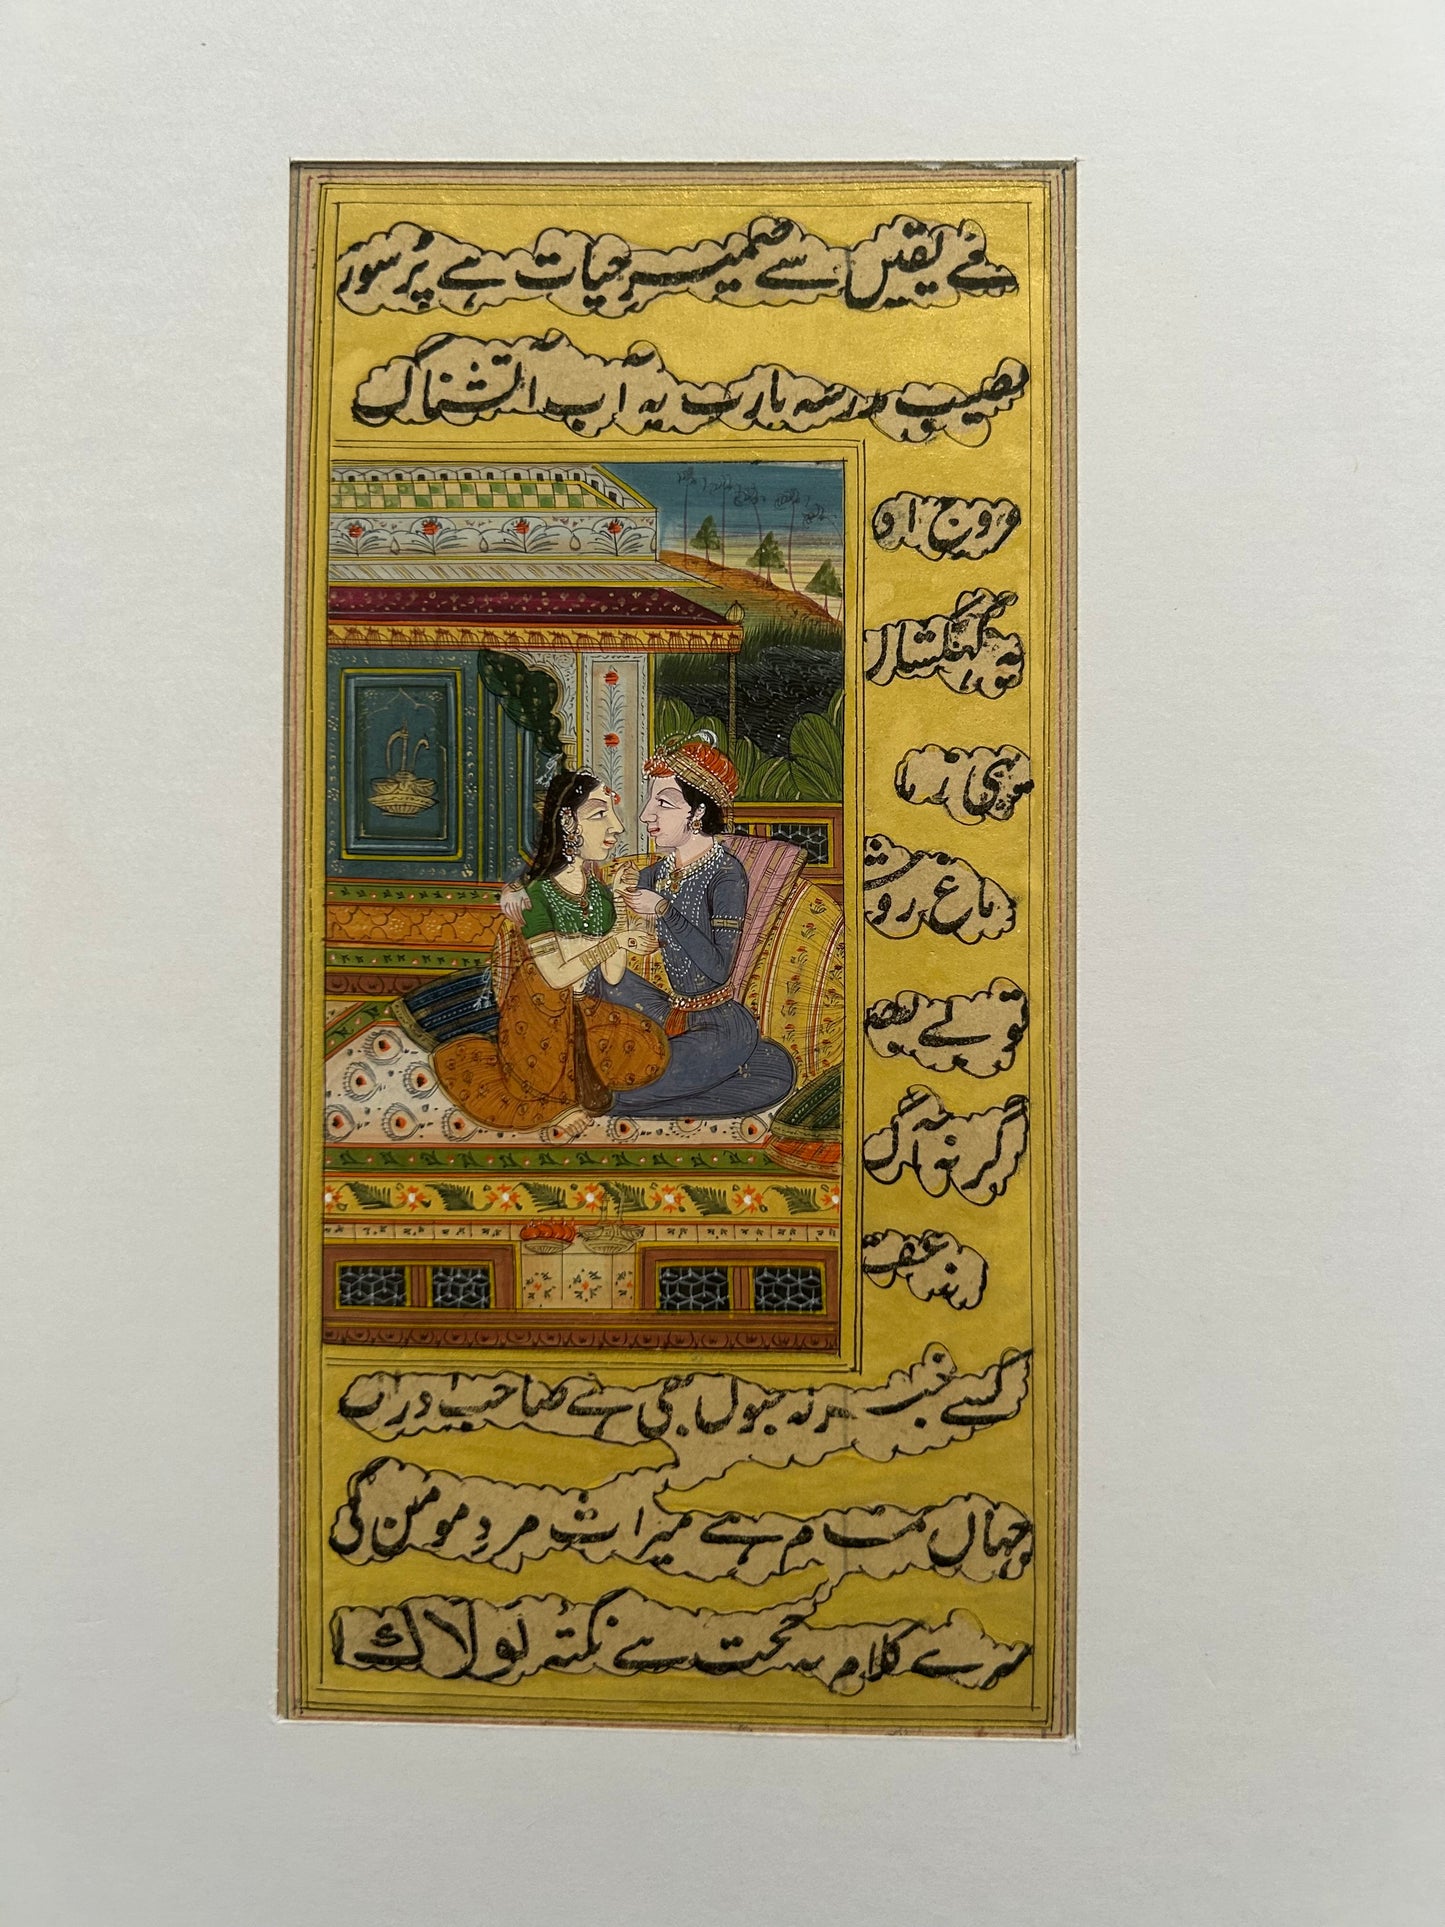 مے یقیں سے ضمیر حیات ہے پُر سوز
نصیب مدرسہ یارب یہ آب آتشناک
عروج اد
یہ کہکشاں
یہی زما
دماغ روش
تو بے بص
وگرنہ آگ
زمانہ عقل
کسے خبر کہ جنوں بھی ہے صاحب ادراک
جہاں تمام ہے میراث مردِ مومن کی
مرے کلام پہ حجت ہے نکتہ لولاک